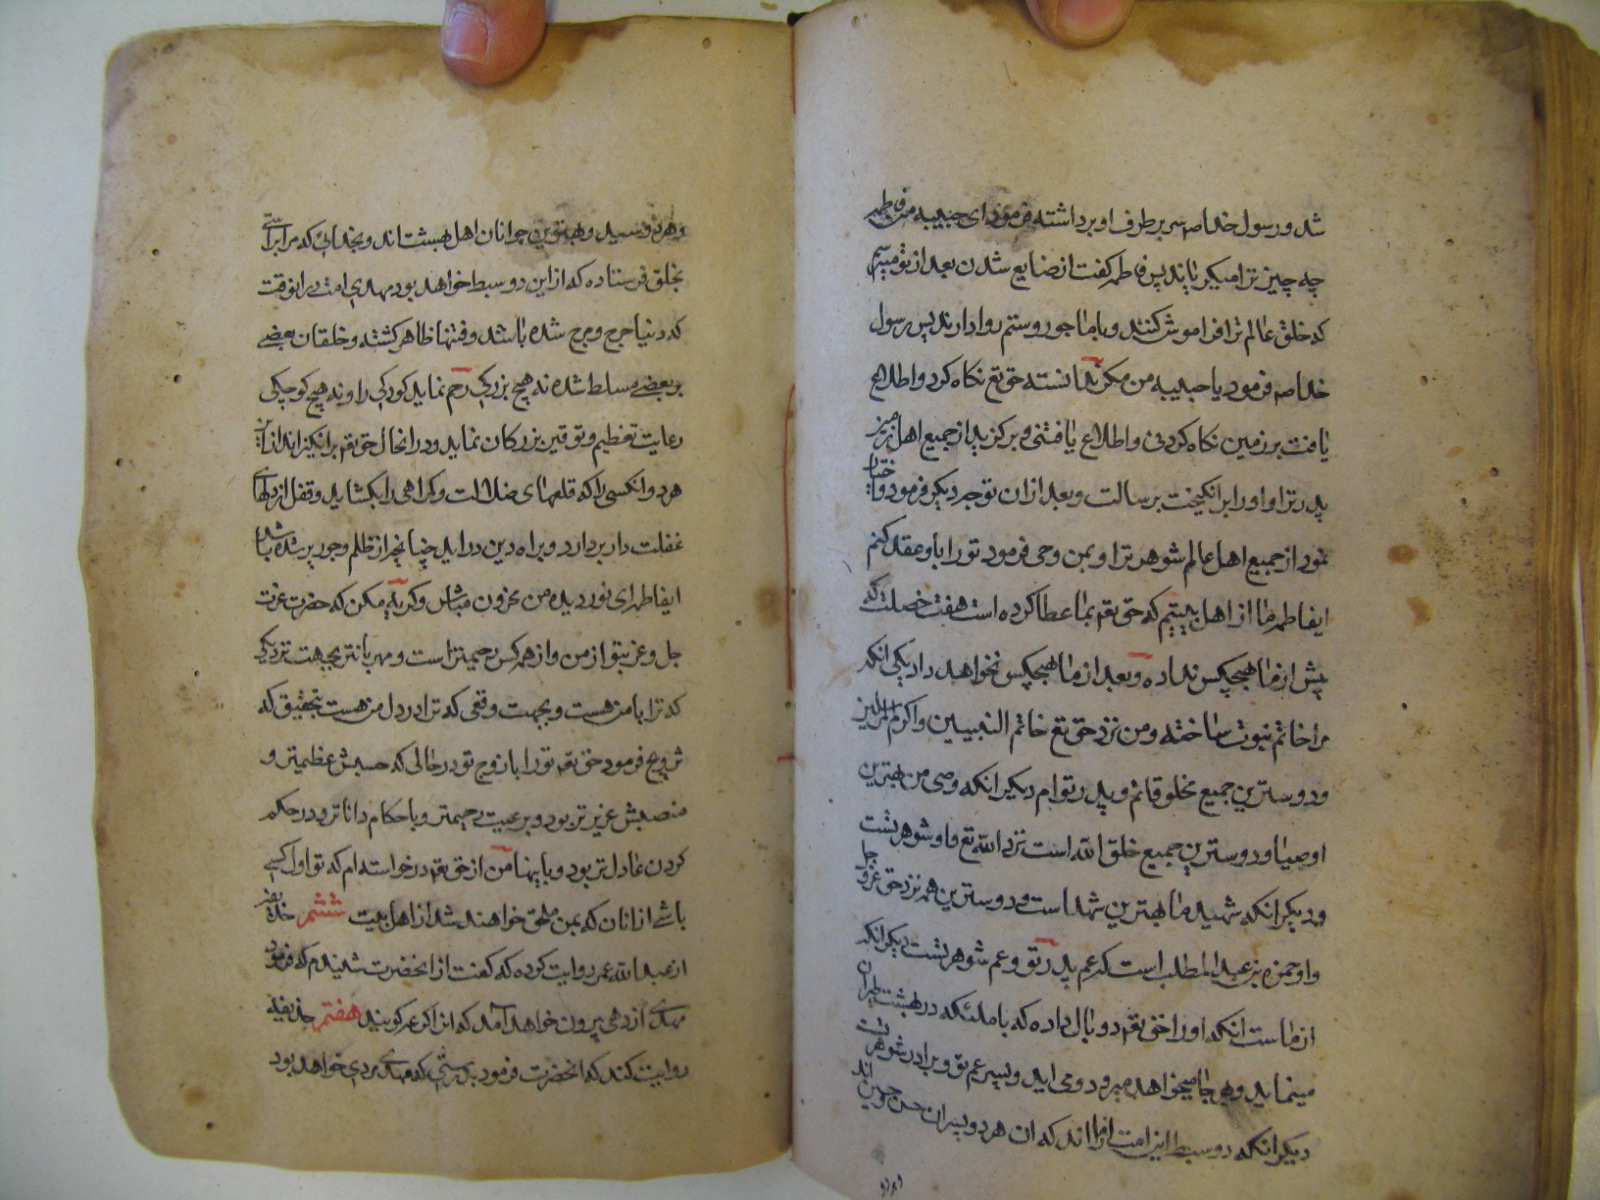 شد و رسول خدا صم سر بر طرف او برداشته فرمود ای حبیبه من فاطمه
چه چیز ترا میگریاند پس فاطمه کفت از ضایع شدن بعد از تو میترسم
که خلق عالم ترا فراموش کنند و با ما جور و ستم روا دارند پس رسول
خدا صم فرمود یا حبیبه من مکر ندانسته حق تع نکاه کرد و اطلاع
یافت بر زمین نکاه کردنی و اطلاع یافتنی و برکزید از جمیع اهل زمین
پدر ترا و او را برانکیخت برسالت و بعد از ان توجه دیکر فرمود و اختیار
نمود از جمیع اهل عالم شوهر ترا و بمن وحی فرمود تو را باو عقد کنم
ایفاطمه ما از اهل بیتیم که حق تعم بما عطا کرده است هفت خصلت که
پیش از ما هیچکس نداده و بعد از ما هیچکس نخواهد داد یکی انکه
مرا خاتم نبوت ساخته و من نزد حق تع خاتم النبیین و اکرم المرسلین
و دوسترین جمیع مخلوقاتم و پدر توام دیکر انکه وصی من بهترین
اوصیا و دوسترین جمیع خلق الله است نزد الله تع و او شوهر تست
و دیکر انکه شهید ما بهترین شهداست و دوسترین همه نزد حق عز و جل
و او حمزه بن عبد المطلب است که عم پدر تو و عم شوهر تست دیکر انکه
از ماست انکه او را حق تعم دو بال داده که با ملئکه در بهشت طیران
مینماید و هر جا میخواهد میرود و می اید و پسر عم تو و برادر شوهر تست
دیکر انکه دو سبط این امت از ما اند که ان هر دو پسران حسن و حسین اند
و هر دو سید و بهترین جوانان اهل بهشت اند و بخدائی که مرا براستی
بخلق فرستاده که از این دو سبط خواهد بود مهدی امت در انوقت
که دنیا هرج و مرج شده باشد و فتنها ظاهر کشته و خلقان بعضی
بر بعضی مسلط شده نه هیچ بزرکی رحم نماید کودکی را و نه هیچ کوچکی
رعایت تعظیم و توقیر بزرکان نماید و در انحال حق تعم برانکیزاند از این
هر دو انکسی را که قلعهای ضلالت و کمراهی را بکشاید و قفل از دلهای
غفلت دار بردارد و براه دین در اید چنانچه از ظلم و جور پر شده باشد
ایفاطمه ای نور دیده من محزون مباش و کریه مکن که حضرت عزت
جل و عز بتو از من و از همه کس رحیمتر است و مهربانتر بجهت نزدیکی
که ترا با من هست و بجهت وقعی که ترا در دل من هست بتحقیق که
تزویج فرمود حق تعم تو را با زوج تو در حالی که حسبش عظیمتر و
منصبش عزیزتر بود و برعیت رحیمتر و باحکام داناتر و در حکم
کردن عادل تر بود و با ینها من از حق تعم درخواسته ام که تو اول کسی
باشی از انان که بمن ملحق خواهند شد از اهل بیت ششم
از عبد الله عمر روایت کرده که کفت از انحضرت شنیدم که فرمود
مهدی از دهی بیرون خواهد آمد که انرا کرعه کویند هفتم حذیفه
روایت کند که انحضرت فرمود بدرستی که مهدی مردی خواهد بود